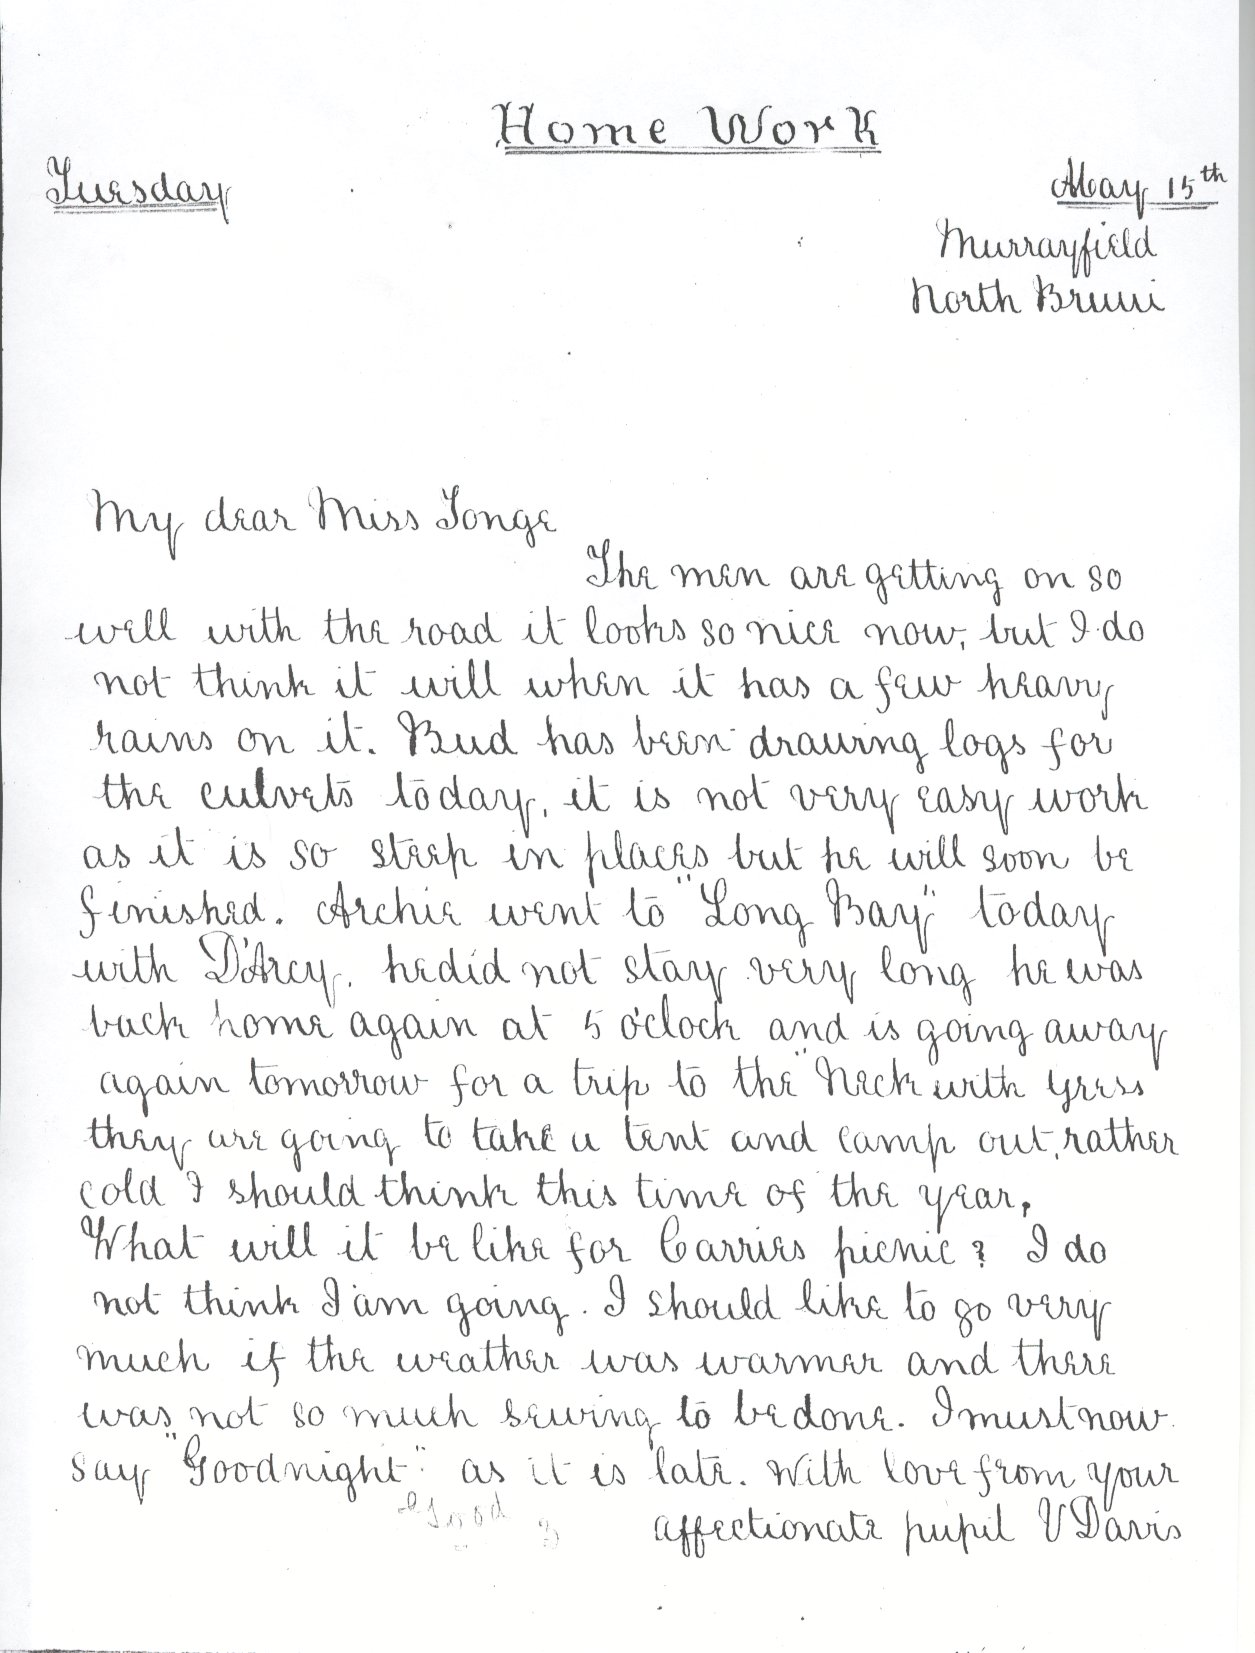 Home Work
Tuesday
May 15th
Murrayfield
North Bruni
My dear Miss Tonge
The men are getting on so
well with the road it looks so nice now, but I do
not think it will when it has a few heavy
rains on it. Bud has been drawing logs for
the culvets today, it is not very easy work
as it is so steep in places but he will soon be
finished. Archie went to "Long Bay" today
with D'Arcy, he did not stay very long he was
back home again at 5 o'clock and is going away
again tomorrow for a trip to the "Neck with
they are going to take a tent and camp out, rather
cold I should think this time of the year,
What will it be like for Carries picnic? I do
not think I'am going. I should like to go very
much if the weather was warmer and there
was not so much sewing to be done. I must now
say "Goodnight" as it is late. With love from your
Good
affectionate pupil V Davis